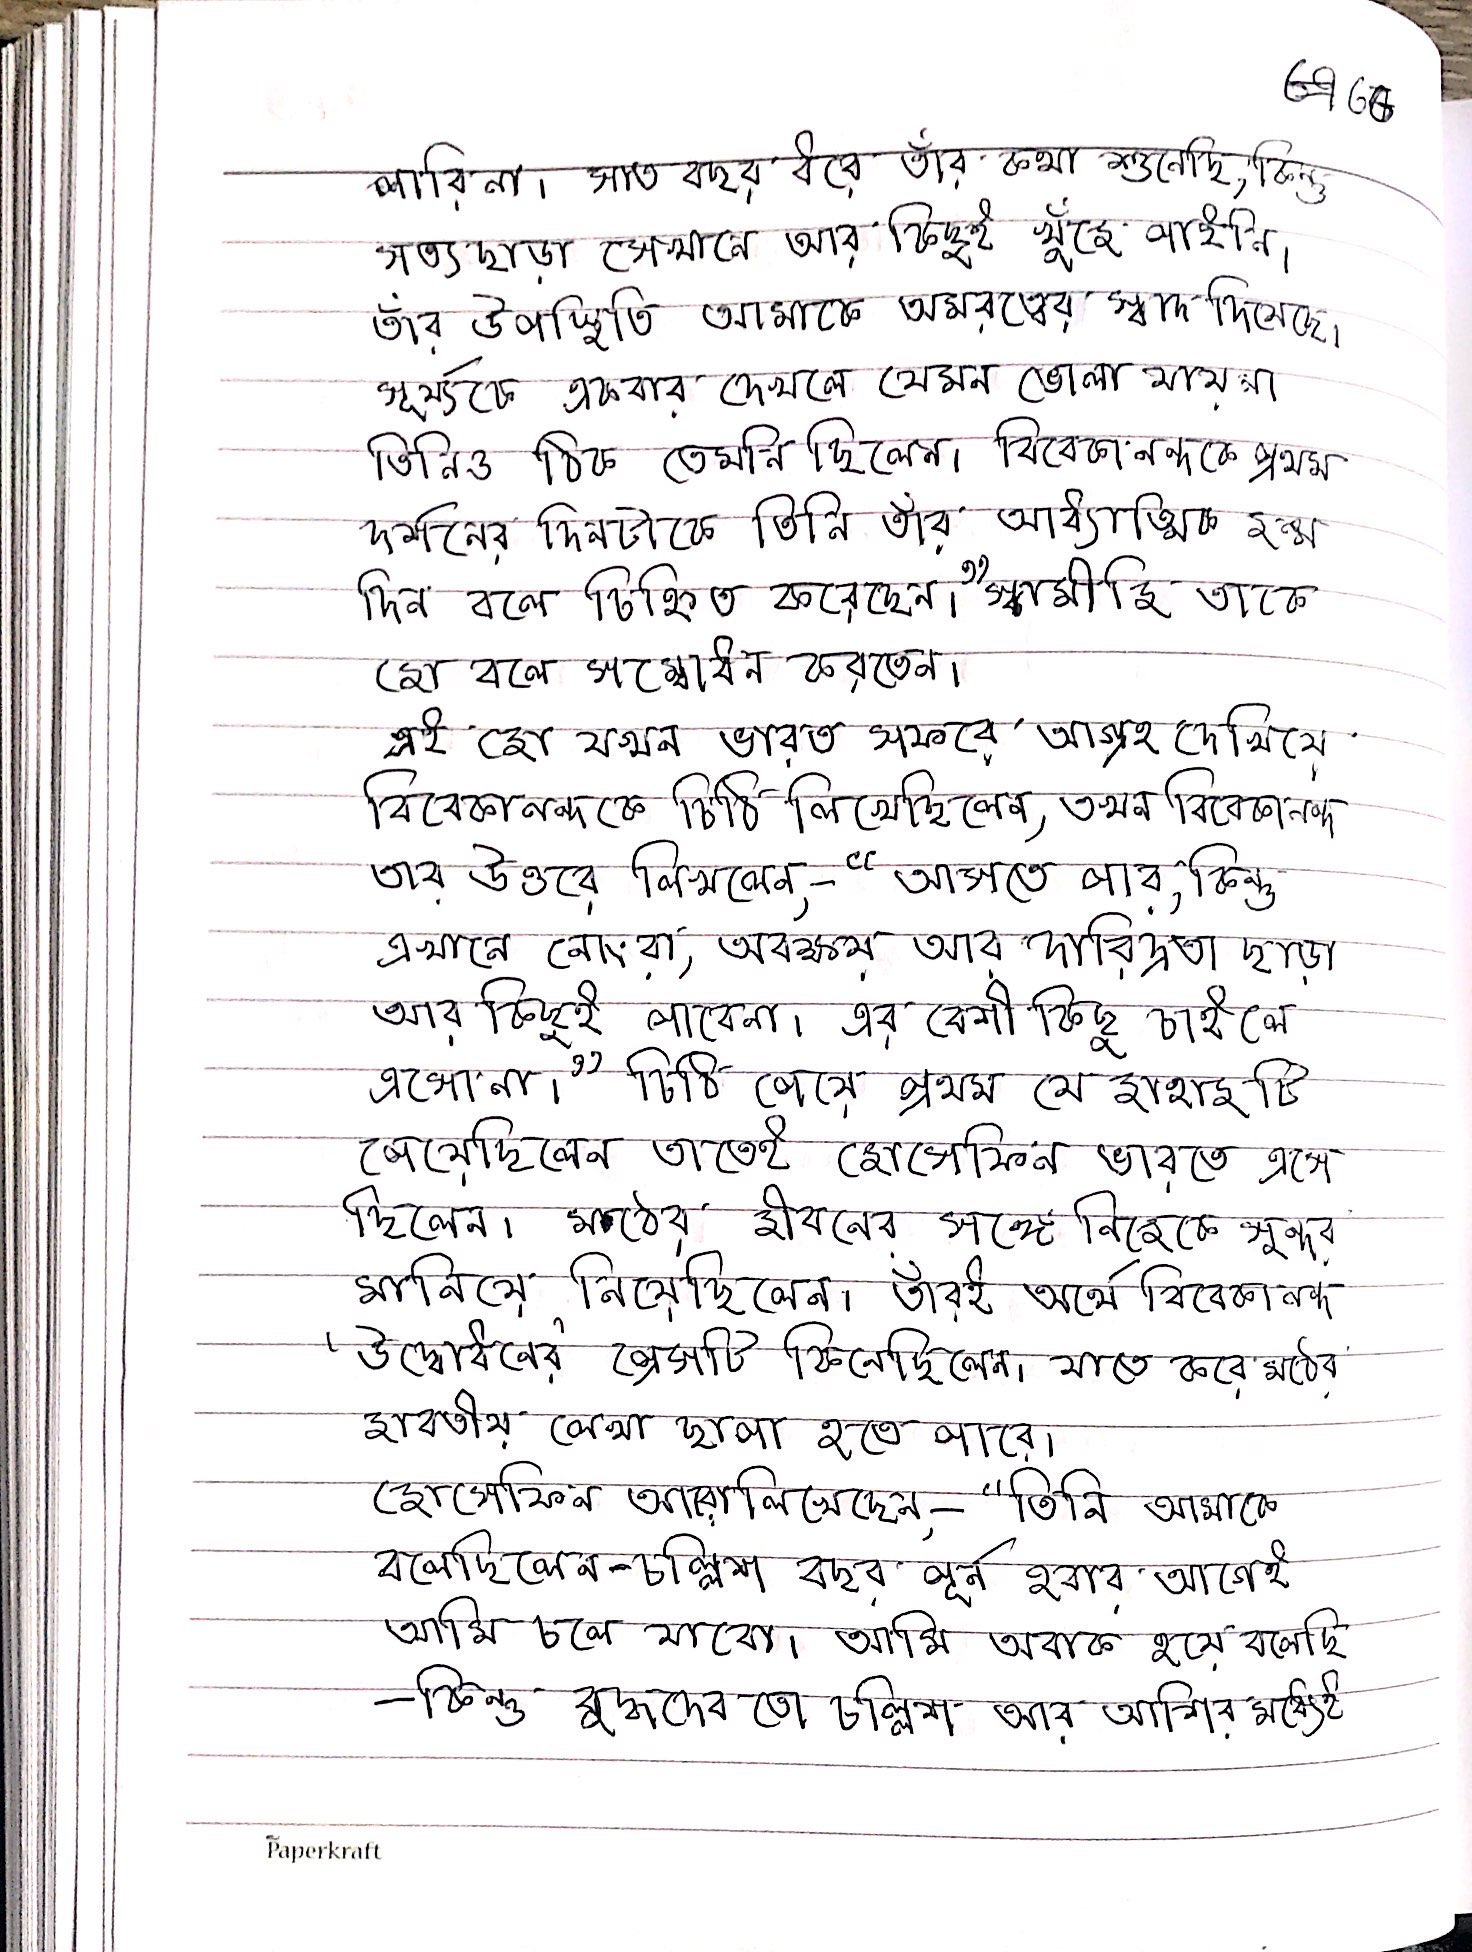 পারিনা। সাত বছর ধরে তাঁর কথা শুনেছি, কিন্তু
সত্য ছাড়া সেখানে আর কিছুই খুঁজে পাইনি।
তাঁর উপস্থিতি আমাকে অমরত্বের স্বাদ দিয়েছে।
সূর্য্যকে একবার দেখলে যেমন ভোলা যায় না
তিনিও ঠিক তেমনি ছিলেন। বিবেকানন্দকে প্রথম
দর্শনের দিনটাকে তিনি তাঁর আধ্যাত্মিক জন্ম
দিন বলে চিহ্নিত করেছেন।” স্বামীজি তাকে
জো বলে সম্বোধন করতেন।
এই জো যখন ভারত সফরে আগ্রহ দেখিয়ে
বিবেকানন্দকে চিঠি লিখেছিলেন, তখন বিবেকানন্দ
তার উত্তরে লিখলেন,– “আসতে পার, কিন্তু
এখানে নোংরা, অবক্ষয় আর দারিদ্রতা ছাড়া
আর কিছুই পাবেনা। এর বেশী কিছু চাইলে
এসোনা।” চিঠি পেয়ে প্রথম যে জাহাজটি
পেয়েছিলেন তাতেই জোসেফিন ভারতে এসে
ছিলেন। মঠের জীবনের সঙ্গে নিজেকে সুন্দর
মানিয়ে নিয়েছিলেন। তাঁরই অর্থে বিবেকানন্দ
‘উদ্বোধনের’ প্রেসটি কিনেছিলেন। যাতে করে মঠের
যাবতীয় লেখা ছাপা হতে পারে।
জোসেফিন আরো লিখেছেন,– “তিনি আমাকে
বলেছিলেন–চল্লিশ বছর পূর্ন হবার আগেই
আমি চলে যাবো। আমি অবাক হয়ে বলেছি
–কিন্তু বুদ্ধদেব তো চল্লিশ আর আশির মধ্যেই
Paperkraft